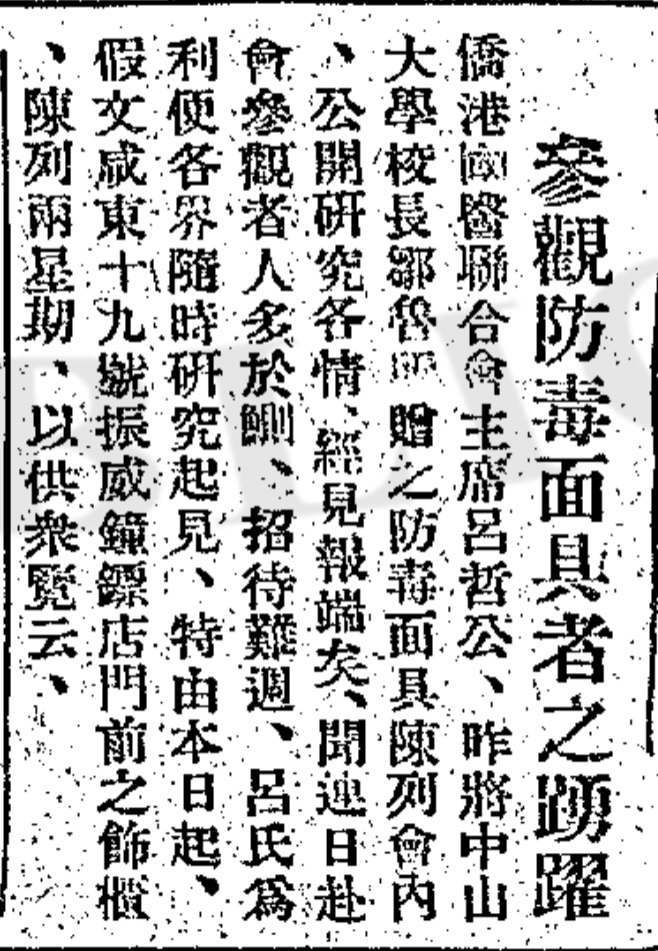 參觀防毒面具者之踴躍
僑港國醫聯合會主席呂哲公、昨將中山
大學校長鄒魯 贈之防毒面具陳列會內
、公開研究各情、經見報端矣、聞連日赴
會參觀者人多於鯽、招待難週、呂氏爲
利便各界隨時研究起見、特由本日起、
假文咸東十九號振威鐘鏢店門前之飾櫃
、陳列兩星期、以供衆覽云、